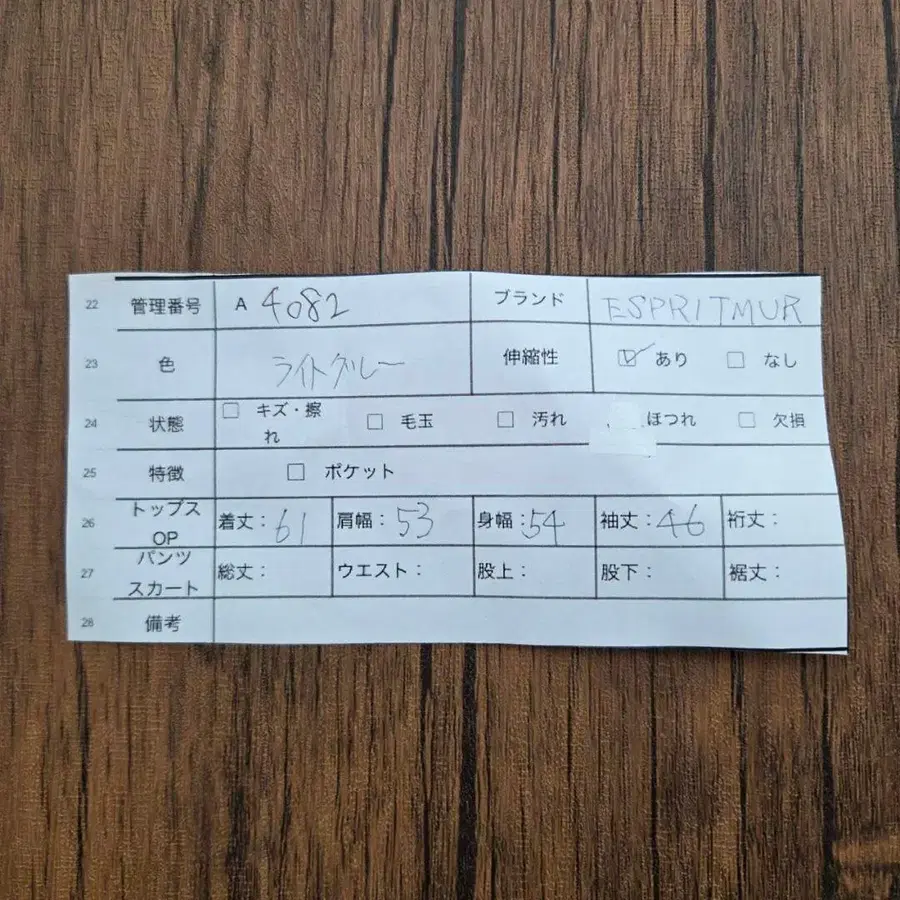 22 管理番号 A 4082 ブランド ESPRITMUR
23 色 ライトグレー 伸縮性 ☑ あり ☐ なし
24 状態 ☐ キズ・擦れ ☐ 毛玉 ☐ 汚れ ほつれ ☐ 欠損
25 特徴 ☐ ポケット
26 トップス OP 着丈：61 肩幅：53 身幅：54 袖丈：46 裄丈：
27 パンツ スカート 総丈： ウエスト： 股上： 股下： 裾丈：
28 備考